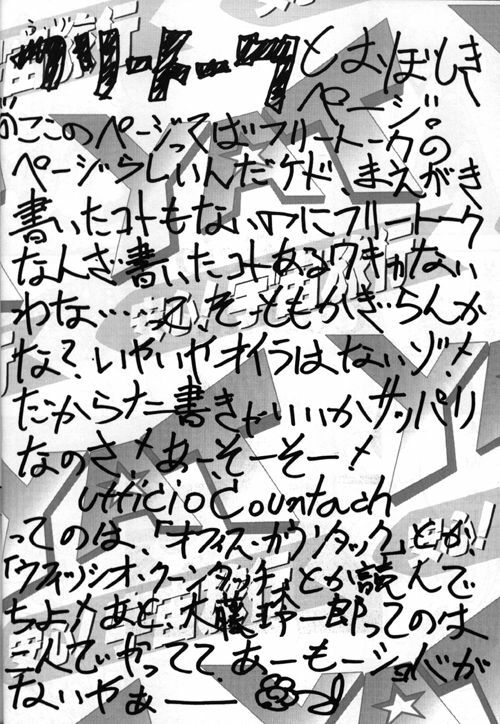 フリートークとおぼしき
ページ!
このページってばフリートークの
ページらしいんだケド、まえがき
書いたコトもないのにフリートーク
なんざ書いたコトあるワキャがない
わな… って、そーともかぎらんか
な?いやいやオイラはないゾ!
だからナニ書きゃいいかサッパリ
なのさ!あーそーそー!
Ufficio Countach
ってのは、「オフィス・カウンタック」とか、
「ウフィッシオ・クーンタッチ」とか読んで
ちょ!あと、大藤玲一郎ってのは
二人でやってて、あーもーショバが
ないやぁ――